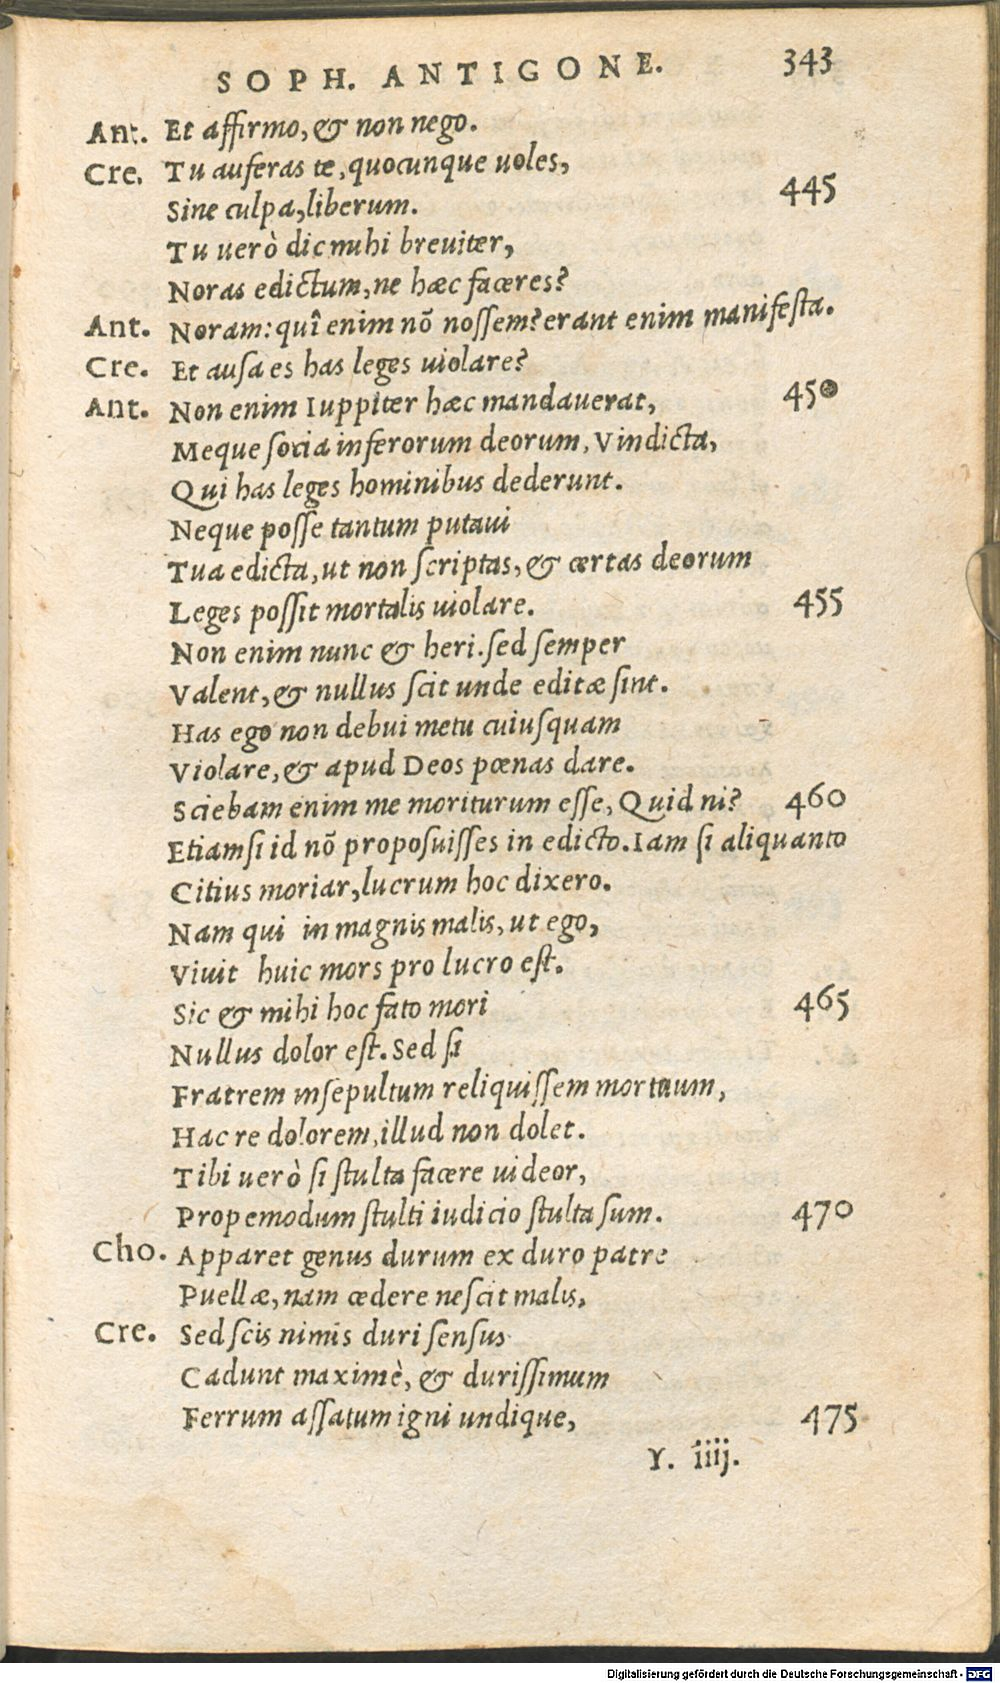 SOPH. ANTIGONE. 343
Ant. Et affirmo, & non nego.
Cre. Tu auferas te, quocunque uoles,
Sine culpa, liberum. 445
Tu uerò dic mihi breuiter,
Noras edictum, ne hæc faceres?
Ant. Noram: quî enim nõ nossem? erant enim manifesta.
Cre. Et ausa es has leges uiolare?
Ant. Non enim Iuppiter hæc mandauerat, 450
Meque socia inferorum deorum, Vindicta,
Qui has leges hominibus dederunt.
Neque posse tantum putaui
Tua edicta, ut non scriptas, & certas deorum
Leges possit mortalis uiolare. 455
Non enim nunc & heri. sed semper
Valent, & nullus scit unde editæ sint.
Has ego non debui metu cuiusquam
Violare, & apud Deos pœnas dare.
Sciebam enim me morituram esse, Quid ni? 460
Etiamsi id nõ proposuisses in edicto. Iam si aliquanto
Citius moriar, lucrum hoc dixero.
Nam qui in magnis malis, ut ego,
Viuit huic mors pro lucro est.
Sic & mihi hoc fato mori 465
Nullus dolor est. Sed si
Fratrem insepultum reliquissem mortuum,
Hac re dolorem, illud non dolet.
Tibi uerò si stulta facere uideor,
Propemodum stulti iudicio stulta sum. 470
Cho. Apparet genus durum ex duro patre
Puellæ, nam cedere nescit malis,
Cre. Sed scis nimis duri sensus
Cadunt maximè, & durissimum
Ferrum assatum igni undique, 475
Y. iiij.
Digitalisierung gefördert durch die Deutsche Forschungsgemeinschaft - DFG